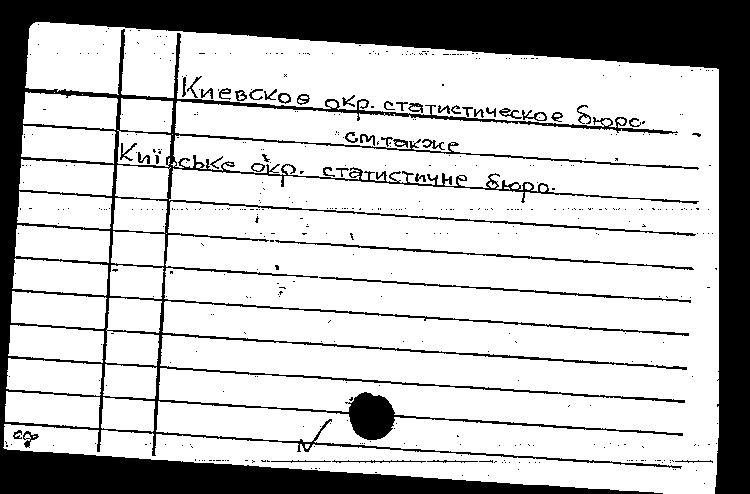 Киевское окр. статистическое бюро.
см. также
Київське окр. статистичне бюро.